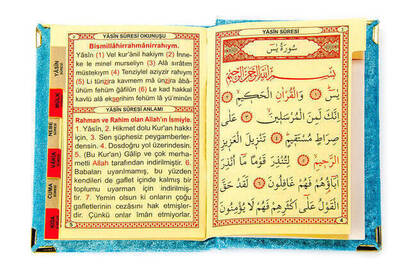 YÂSÎN SÛRESİ OKUNUŞU
Bismillâhirrahmânirrahıym.
Yâsîn (1) Vel kur'ânil hakiym (2) İnne-
ke le minel murseliyn (3) Alâ sırâtım
müstekıym (4) Tenziylel aziyzir rahıym
(5) Litünzira kavmem mâ ünzira âbâ-
ühüm fehüm ğâfilûn (6) Le kad hakkal
kavlü alâ ekserihim fehüm lâ yü'minûn
YÂSÎN SÛRESİ ANLAMI
Rahman ve Rahim olan Allah'ın İsmiyle.
1. Yâsîn, 2. Hikmet dolu Kur'an hakkı
için, 3. Sen şüphesiz peygamberler-
densin. 4. Dosdoğru yol üzerindesin.
5. (Bu Kur'an) Gâlip ve çok merha-
metli Allah tarafından indirilmiştir. 6.
Babaları uyarılmamış, bu yüzden
kendileri de gaflet içinde kalmış bir
toplumu uyarman için indirilmiş-
tir. 7. Yemin olsun ki onların çoğu
gafletlerinin cezâsını hak etmişler-
dir. Çünkü onlar îmân etmiyorlar.
YÂSÎN
MÜLK
NEBE
CUMA
YÂSÎN SÛRESİ
سُورَةُ يٰسٓ
بِسْمِ اللّٰهِ الرَّحْمٰنِ الرَّحِيمِ
يٰسٓ ﴿١﴾ وَالْقُرْاٰنِ الْحَكِيمِ ﴿٢﴾
اِنَّكَ لَمِنَ الْمُرْسَلِينَ ﴿٣﴾ عَلٰى
صِرَاطٍ مُسْتَقِيمٍ ﴿٤﴾ تَنْزِيلَ الْعَزِيزِ
الرَّحِيمِ ﴿٥﴾ لِتُنْذِرَ قَوْمًا مَٓا اُنْذِرَ
اٰبَٓاؤُهُمْ فَهُمْ غَافِلُونَ ﴿٦﴾ لَقَدْ حَقَّ
الْقَوْلُ عَلٰٓى اَكْثَرِهِمْ فَهُمْ لَا يُؤْمِنُونَ